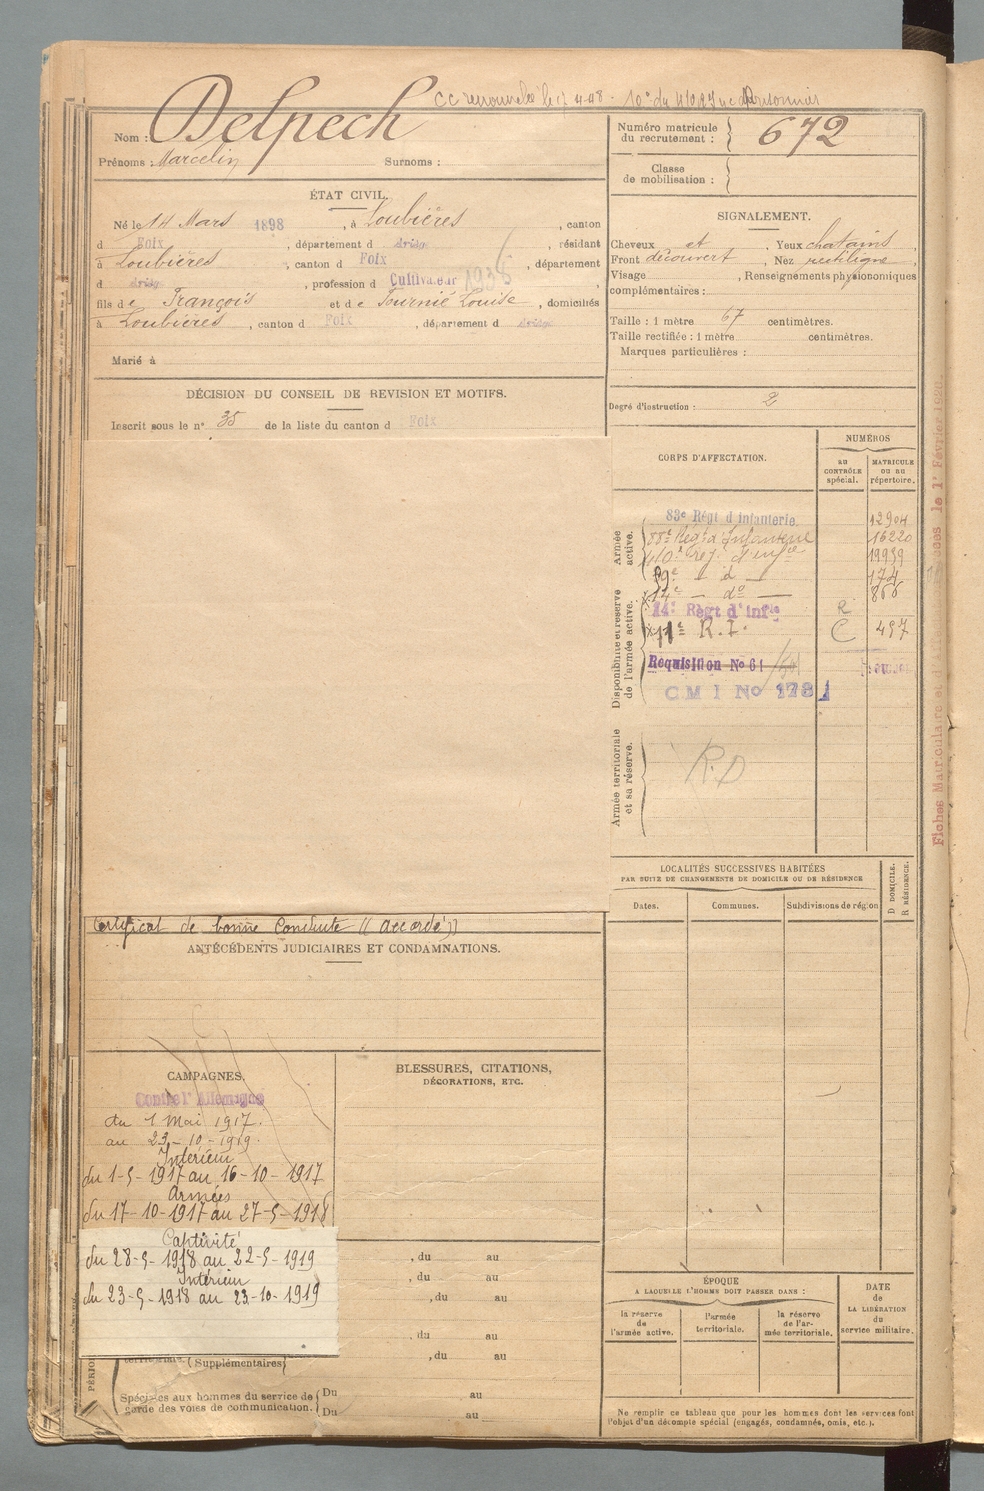 CC renouvelé le
Nom : Delpech
Prénoms : Marcelin Surnoms :
Numéro matricule du recrutement : 672
Classe de mobilisation :
ÉTAT CIVIL.
Né le 14 Mars 1898, à Loubières, canton
d Foix, département d Ariège, résidant
à Loubières, canton d Foix, département
d Ariège, profession d Cultivateur
fils de François et de Fournié Louise, domiciliés
à Loubières, canton d Foix, département d Ariège
Marié à
SIGNALEMENT.
Cheveux et, Yeux chatains,
Front découvert, Nez rectiligne,
Visage, Renseignements physionomiques
complémentaires :
Taille : 1 mètre 67 centimètres.
Taille rectifiée : 1 mètre centimètres.
Marques particulières :
Degré d'instruction : 2
DÉCISION DU CONSEIL DE REVISION ET MOTIFS.
Inscrit sous le n° 35 de la liste du canton d Foix
CORPS D'AFFECTATION.
NUMÉROS
au CONTRÔLE spécial.
MATRICULE ou au répertoire.
Armée active.
83e Régt d'infanterie. 12904
88e Régt d'Infanterie 16220
10e rég. d'infie 19939
d° 174
14e d° 866
Disponibilité et réserve de l'armée active.
14e Regt d'infie R
11e R.I. C 497
Requisition No 61
CMI No 178
Armée territoriale et sa réserve.
R.D
LOCALITÉS SUCCESSIVES HABITÉES
PAR SUITE DE CHANGEMENTS DE DOMICILE OU DE RÉSIDENCE
Dates.
Communes.
Subdivisions de région
D DOMICILE.
R RÉSIDENCE.
Certificat de bonne Conduite (( accordé ))
ANTÉCÉDENTS JUDICIAIRES ET CONDAMNATIONS.
CAMPAGNES.
Contre l'Allemagne
du 1 Mai 1917.
au 23-10-1919.
Intérieur
du 1-5-1917 au 16-10-1917
Armées
du 17-10-1917 au 27-5-1918
Captivité
du 28-5-1918 au 22-5-1919
Intérieur
du 23-5-1918 au 23-10-1919
BLESSURES, CITATIONS,
DÉCORATIONS, ETC.
, du au
, du au
, du au
, du au
, du au
territoriale. (Supplémentaires)
Spéciales aux hommes du service de garde des voies de communication.
Du au
Du au
ÉPOQUE
A LAQUELLE L'HOMME DOIT PASSER DANS :
la réserve de l'armée active.
l'armée territoriale.
la réserve de l'armée territoriale.
DATE de LA LIBÉRATION du service militaire.
Ne remplir ce tableau que pour les hommes dont les services font
l'objet d'un décompte spécial (engagés, condamnés, omis, etc.).